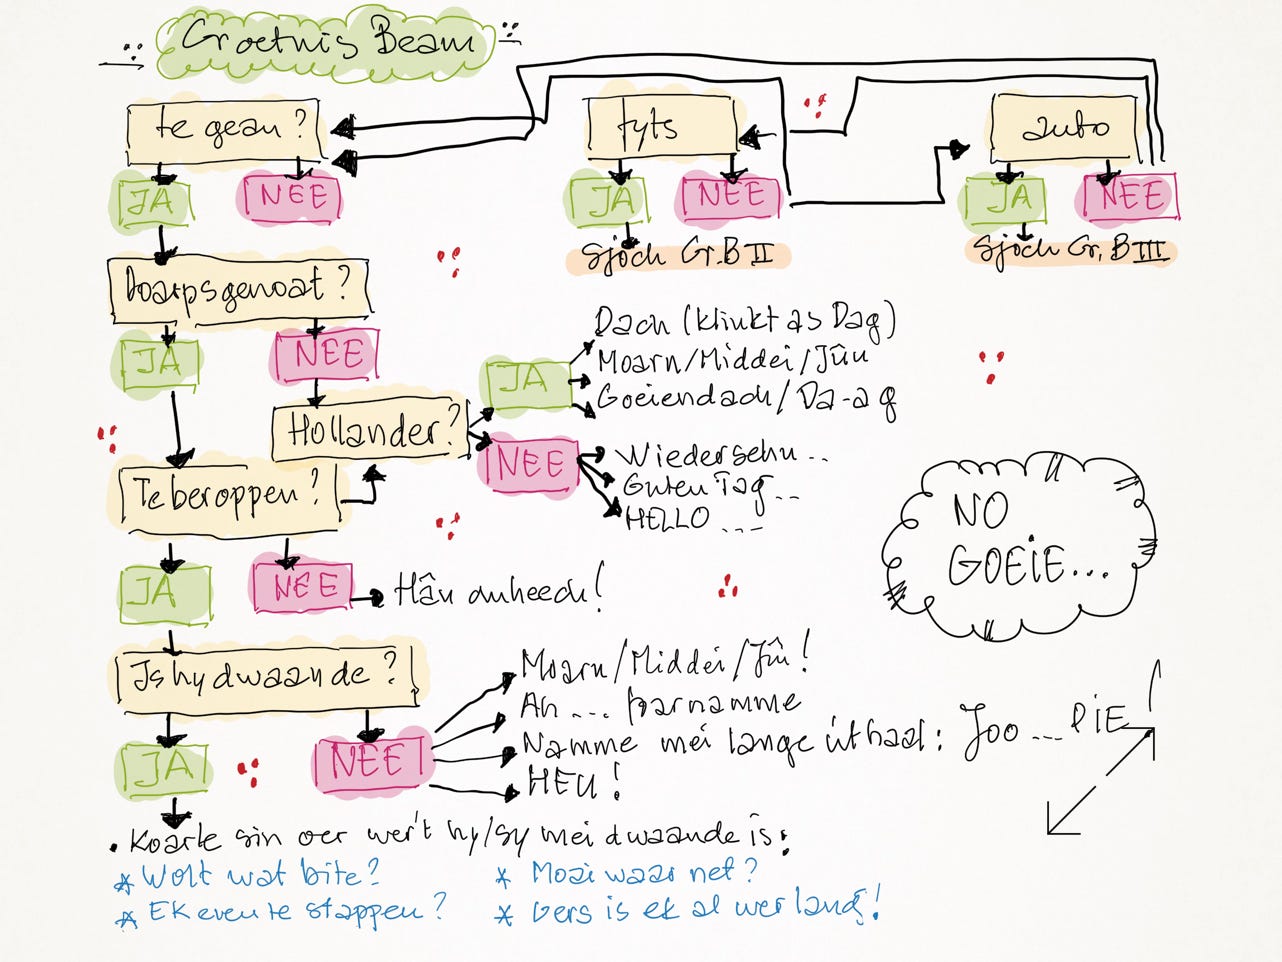 Groetnis Beam
te gean?
fyts
auto
JA
NEE
JA
NEE
JA
NEE
Sjoch Gr.B II
Sjoch Gr. B III
Doarpsgenoat?
JA
NEE
Hollander?
JA
Dach (klinkt as Dag)
Moarn/Middei/Jûn
Goeiendach/Da-ag
NEE
Wiedersehn..
Guten Tag...
HELLO ....
Te beroppen?
JA
NEE
Hân omheech!
NO
GOEIE...
Is hy dwaande?
JA
NEE
Moarn/Middei/Jûn!
Ah ... farnamme
Namme mei lange úthaal: Joo .... PIE!
HEU!
. Koarte sin oer wer't hy/sy mei dwaande is:
* Wolt wat bite?
* Moai waar net?
* Ek even te stappen?
* Gers is ek al wer lang!